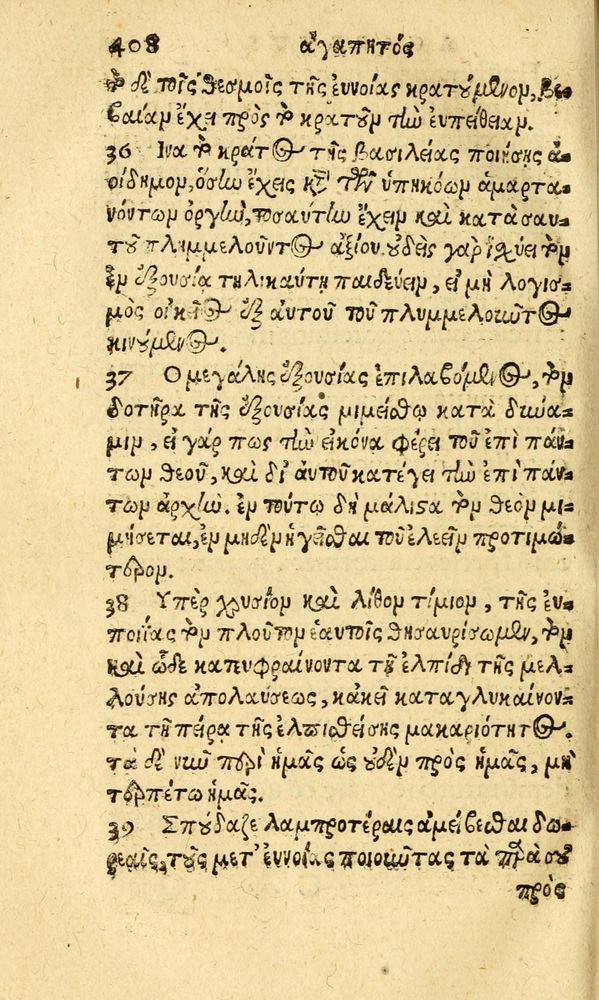 408 ἀγαπητός
τὸ δὲ τοῖς θεσμοῖς τῆς ἐυνοίας κρατούμενον, βε-
βαίαν ἔχει πρὸς τὸ κρατοῦν τὴν ἐυπείθειαν.
36 Ινα τὸ κράτος τῆς βασιλείας ποιήσῃς ἀ-
οίδημον, ὅσην ἔχεις κατὰ τῶν ὑπηκόων ἁμαρτα-
νόντων ὀργὴν, τοσαύτην ἔχειν καὶ κατὰ σαυ-
τοῦ πλημμελοῦντος ἀξίου. οὐδεὶς γὰρ ἰσχύει τὸν
ἐν ἐξουσίᾳ τηλικαύτῃ παιδεύειν, εἰ μὴ λογισ-
μὸς οἰκεῖος ἐξ αὐτοῦ τοῦ πλυμμελοιῶτος
κινούμενος.
37 Ο μεγάλης ἐξουσίας ἐπιλαβόμενος, τὸν
δοτῆρα τῆς ἐξουσίας μιμείσθω κατὰ δύνα-
μιν, εἰ γάρ πως τὴν εἰκόνα φέρει τοῦ ἐπὶ πάν-
των θεοῦ, καὶ δι' αὐτοῦ κατέγει τὴν ἐπὶ πάν-
των ἀρχήν. ἐν τούτῳ δὴ μάλιστα τὸν θεὸν μι-
μήσεται, ἐν μηδὲν ἡγεῖσθαι τοῦ ἐλεεῖν προτιμώ-
τερον.
38 Υπὲρ χρυσίον καὶ λίθον τίμιον, τῆς ἐυ-
ποιΐας τὸν πλοῦτον ἑαυτοῖς θησαυρίσωμεν, τὸν
καὶ ὧδε κατευφραίνοντα τῇ ἐλπίδι τῆς μελ-
λούσης ἀπολαύσεως, κἀκεῖ καταγλυκαίνον-
τα τῇ πείρᾳ τῆς ἐλπισθείσης μακαριότητος.
τὰ δὲ νῦν περὶ ἡμᾶς ὡς οὐδὲν πρὸς ἡμᾶς, μὴ
τερπέτω ἡμᾶς.
39 Σπούδαζε λαμπροτέραις ἀμείβεσθαι δω-
ρεαῖς, τοὺς μετ' ἐυνοίας ποιοιῶτας τὰ παρὰ σοῦ
πρὸς